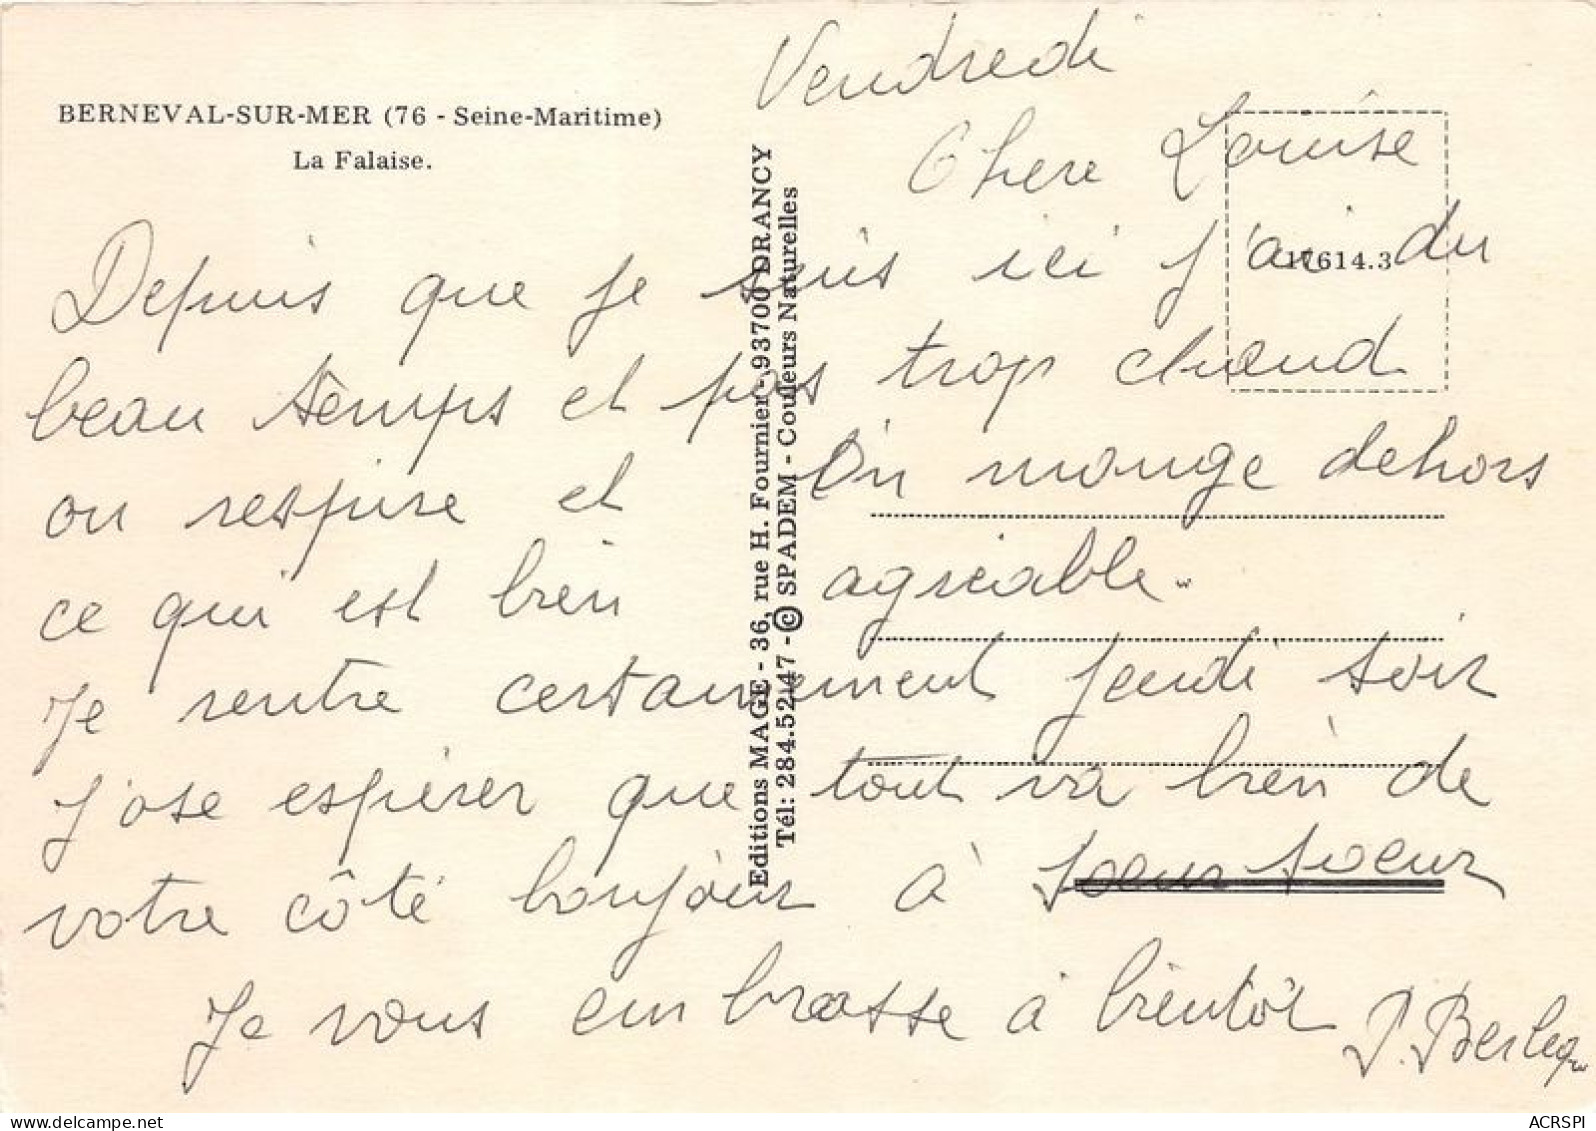 Vendredi
BERNEVAL-SUR-MER (76 - Seine-Maritime)
La Falaise.
Chere Louise
Depuis que je suis ici j'ai du
17614.3
beau temps et pas trop chaud
on respire et on mange dehors
ce qui est bien agréable.
Je rentre certainement jeudi soir
J'ose espérer que tout va bien de
votre côté bonjour à soeur
Je vous embrasse à bientôt
Editions MAGE - 36, rue H. Fournier - 93700 DRANCY
Tél: 284.52.47 - © SPADEM - Couleurs Naturelles
ACRSPI